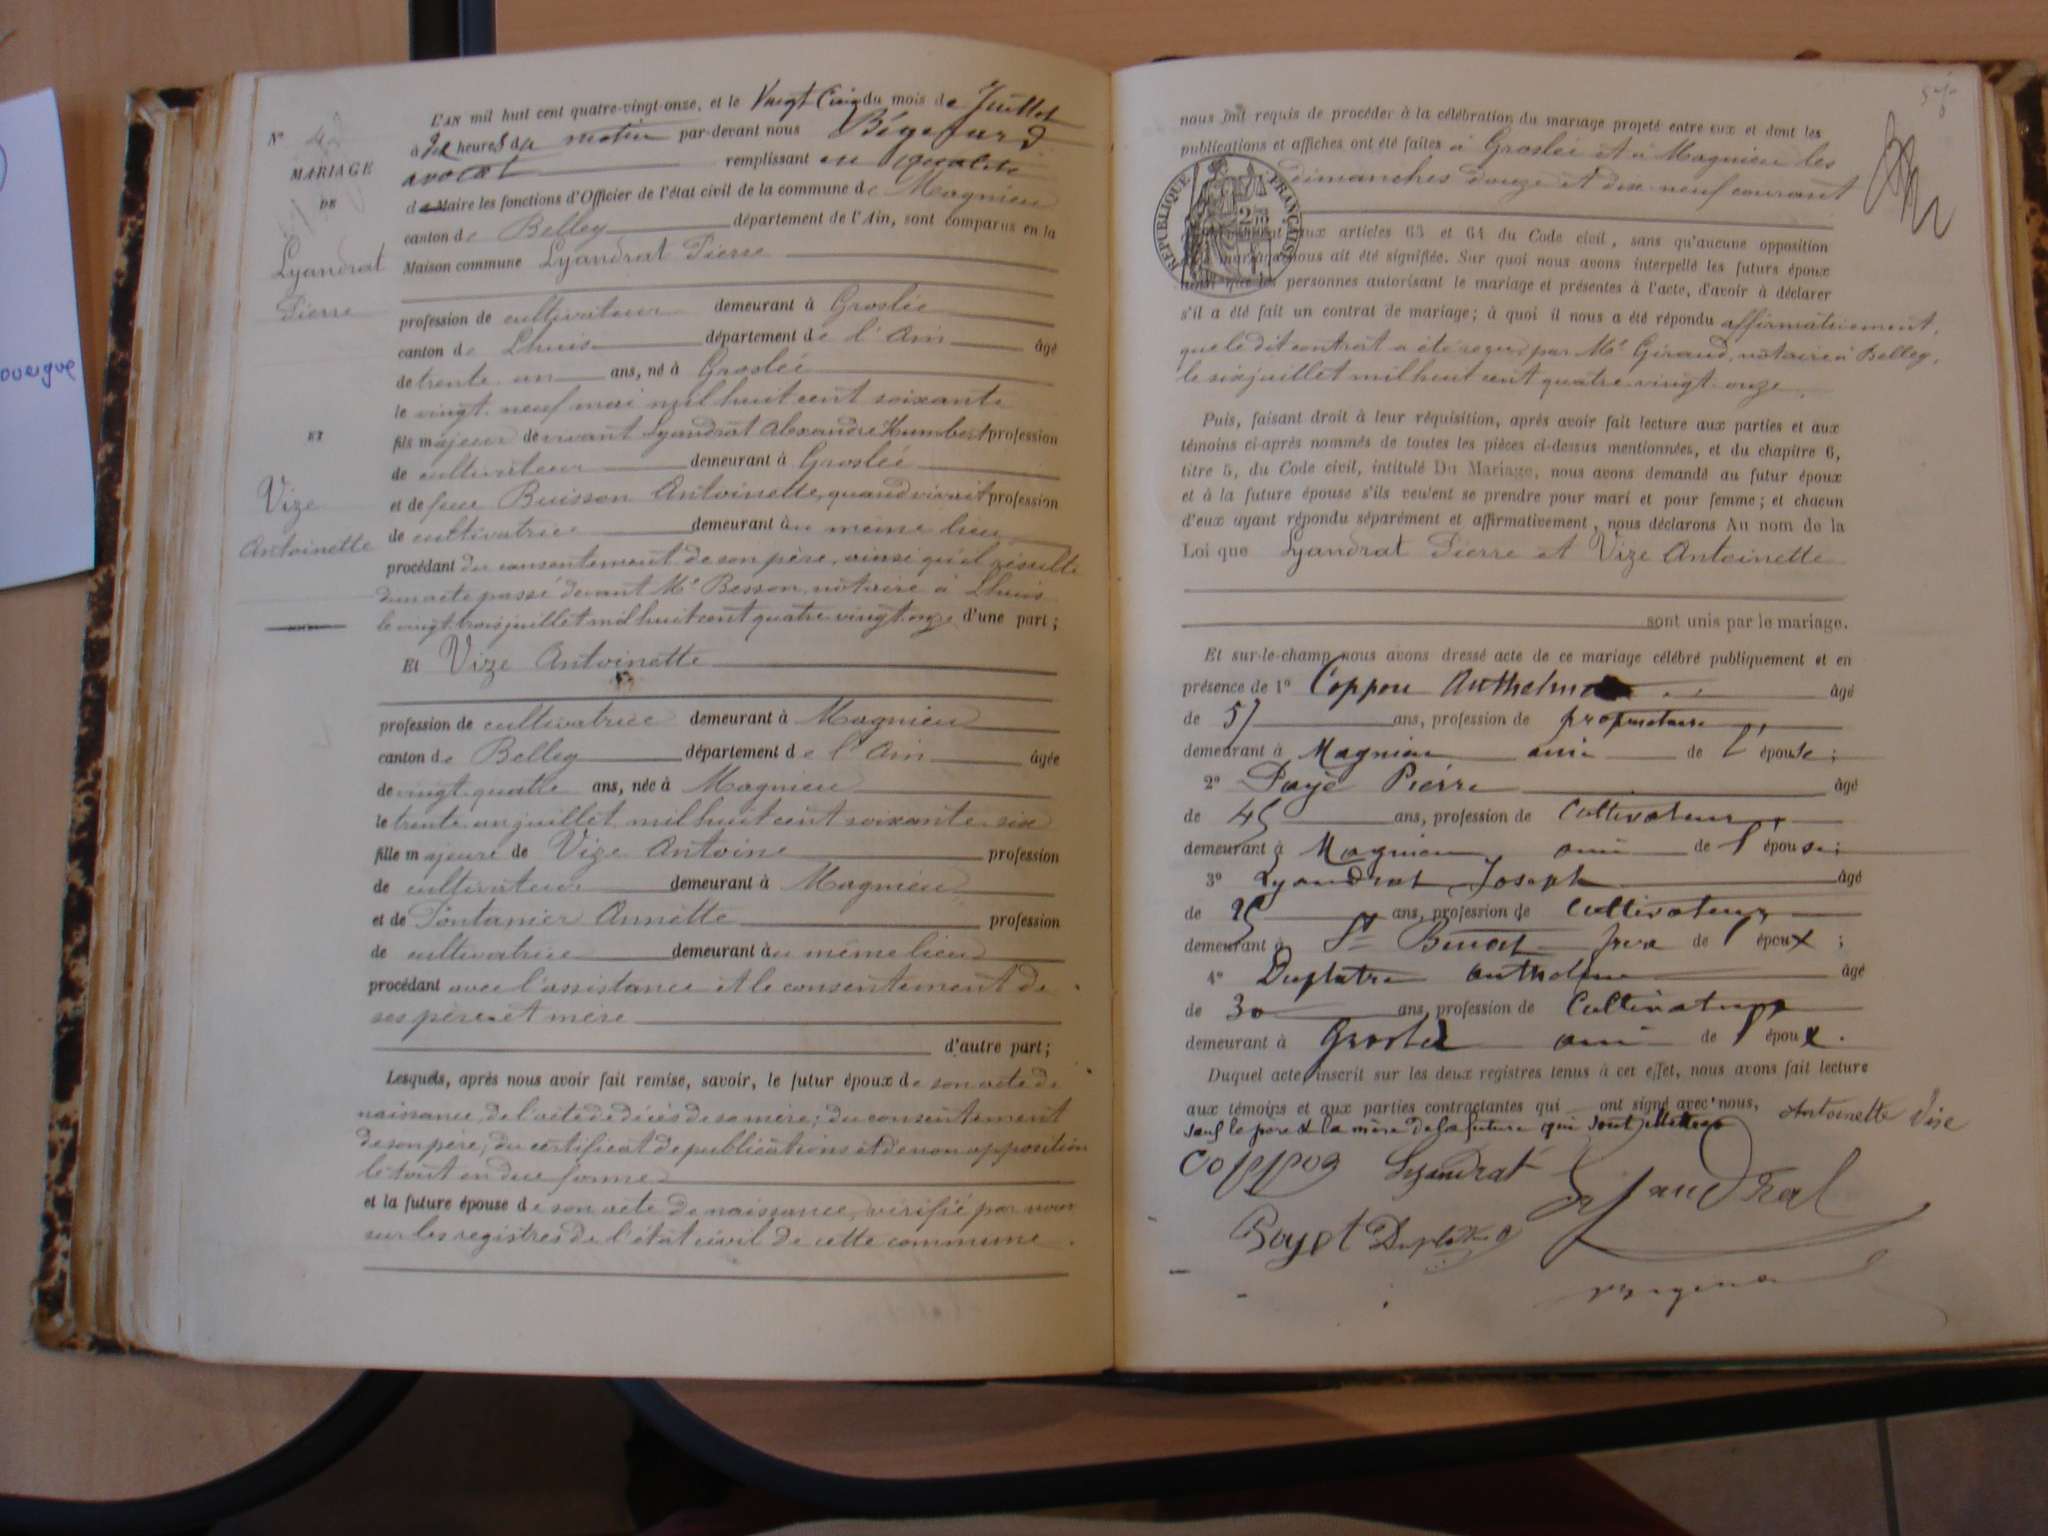 ouergue
Nº
MARIAGE
DE
Lyandrat
Pierre
ET
Vize
Antoinette
L'AN mil huit cent quatre-vingt-onze, et le Vingt Cinq du mois de Juillet
à heures du matin par-devant nous
avocat remplissant en qualité
de Maire les fonctions d'Officier de l'état civil de la commune de Magnieu
canton de Belley département de l'Ain, sont comparus en la
Maison commune Lyandrat Pierre
profession de cultivateur demeurant à Groslée
canton de Lhuis département de l'Ain âgé
de trente un ans, né à Groslée
le vingt neuf mai mil huit cent soixante
fils majeur de vivant Lyandrat Alexandre Humbert profession
de cultivateur demeurant à Groslée
et de feue Buisson Antoinette, quand vivait profession
de cultivatrice demeurant au même lieu
procédant du consentement de son père, ainsi qu'il résulte
d'un acte passé devant Me Besson, notaire à Lhuis
le vingt trois juillet mil huit cent quatre vingt onze d'une part;
Et Vize Antoinette
profession de cultivatrice demeurant à Magnieu
canton de Belley département de l'Ain âgée
de vingt quatre ans, née à Magnieu
le trente un juillet mil huit cent soixante six
fille majeure de Vize Antoine profession
de cultivateur demeurant à Magnieu
et de Fontanier Annette profession
de cultivatrice demeurant au même lieu
procédant avec l'assistance et le consentement de
ses père et mère
d'autre part;
Lesquels, après nous avoir fait remise, savoir, le futur époux de son acte de
naissance, de l'acte de décès de sa mère; du consentement
de son père; du certificat de publications et de non opposition
le tout en due forme
et la future épouse de son acte de naissance, vérifié par nous
sur les registres de l'état civil de cette commune.
nous ont requis de procéder à la célébration du mariage projeté entre eux et dont les
publications et affiches ont été faites à Groslée et à Magnieu les
dimanches douze et dix neuf courant
RÉPUBLIQUE FRANÇAISE
aux articles 63 et 64 du Code civil, sans qu'aucune opposition
mariage nous ait été signifiée. Sur quoi nous avons interpellé les futurs époux
ainsi que les personnes autorisant le mariage et présentes à l'acte, d'avoir à déclarer
s'il a été fait un contrat de mariage; à quoi il nous a été répondu affirmativement,
que le dit contrat a été reçu par Me Giraud, notaire à Belley,
le six juillet mil huit cent quatre vingt onze.
Puis, faisant droit à leur réquisition, après avoir fait lecture aux parties et aux
témoins ci-après nommés de toutes les pièces ci-dessus mentionnées, et du chapitre 6,
titre 5, du Code civil, intitulé Du Mariage, nous avons demandé au futur époux
et à la future épouse s'ils veulent se prendre pour mari et pour femme; et chacun
d'eux ayant répondu séparément et affirmativement, nous déclarons Au nom de la
Loi que Lyandrat Pierre et Vize Antoinette
sont unis par le mariage.
Et sur-le-champ nous avons dressé acte de ce mariage célébré publiquement et en
présence de 1º Coppon Anthelme âgé
de ans, profession de propriétaire
demeurant à Magnieu ami de l'épouse;
2º Pierre âgé
de 45 ans, profession de Cultivateur
demeurant à Magnieu ami de l'épouse;
3º Lyandrat Joseph âgé
de 25 ans, profession de Cultivateur
demeurant à St Benoit frère de l'époux;
4º Duplatre Anthelme âgé
de 30 ans, profession de Cultivateur
demeurant à Groslée ami de l'époux.
Duquel acte, inscrit sur les deux registres tenus à cet effet, nous avons fait lecture
aux témoins et aux parties contractantes qui ont signé avec nous,
sauf le père et la mère de la future qui sont illettrés
Antoinette Vize
Coppon Lyandrat Lyandrat